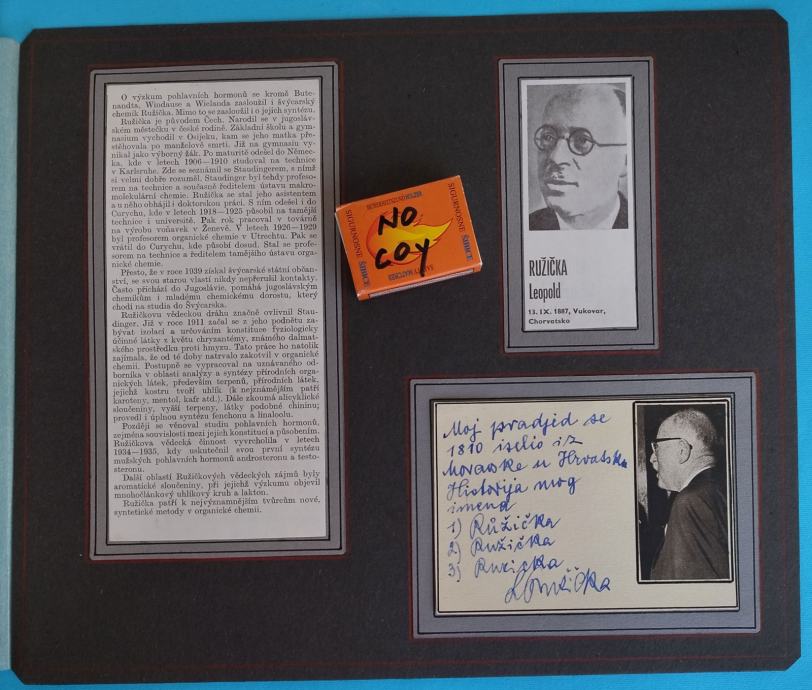 O výzkum pohlavních hormonů se kromě Bute-
nandta, Windause a Wielanda zasloužil i švýcarský
chemik Ružička. Mimo to se zasloužil i o jejich syntézu.
Ružička je původem Čech. Narodil se v jugosláv-
ském městečku v české rodině. Základní školu a gym-
nasium vychodil v Osijeku, kam se jeho matka pře-
stěhovala po manželově smrti. Již na gymnasiu vy-
nikal jako výborný žák. Po maturitě odešel do Němec-
ka, kde v letech 1906—1910 studoval na technice
v Karlsruhe. Zde se seznámil se Staudingerem, s nímž
si velmi dobře rozuměl. Staudinger byl tehdy profeso-
rem na technice a současně ředitelem ústavu makro-
molekulární chemie. Ružička se stal jeho asistentem
a u něho obhájil i doktorskou práci. S ním odešel i do
Curychu, kde v letech 1918—1925 působil na tamější
technice i universitě. Pak rok pracoval v továrně
na výrobu voňavek v Ženevě. V letech 1926—1929
byl profesorem organické chemie v Utrechtu. Pak se
vrátil do Curychu, kde působí dosud. Stal se profe-
sorem na technice a ředitelem tamějšího ústavu orga-
nické chemie.
Přesto, že v roce 1939 získal švýcarské státní občan-
ství, se svou starou vlastí nikdy nepřerušil kontakty.
Často přichází do Jugoslávie, pomáhá jugoslávským
chemikům i mladému chemickému dorostu, který
chodí na studia do Švýcarska.
Ružičkovu vědeckou dráhu značně ovlivnil Stau-
dinger. Již v roce 1911 začal se z jeho podnětu za-
bývat izolací a určováním konstituce fyziologicky
účinné látky z květu chryzantémy, známého dalmat-
ského prostředku proti hmyzu. Tato práce ho natolik
zajímala, že od té doby natrvalo zakotvil v organické
chemii. Postupně se vypracoval na uznávaného od-
borníka v oblasti analýzy a syntézy přírodních orga-
nických látek, především terpenů, přírodních látek,
jejichž kostru tvoří uhlík (k nejznámějším patří
karoteny, mentol, kafr atd.). Dále zkoumá alicyklické
sloučeniny, vyšší terpeny, látky podobné chininu;
provedl i úplnou syntézu fenchonu a linaloolu.
Později se věnoval studiu pohlavních hormonů,
zejména souvislosti mezi jejich konstitucí a působením.
Ružičkova vědecká činnost vyvrcholila v letech
1934—1935, kdy uskutečnil svou první syntézu
mužských pohlavních hormonů androsteronu a testo-
steronu.
Další oblastí Ružičkových vědeckých zájmů byly
aromatické sloučeniny, při jejichž výzkumu objevil
mnohočlánkový uhlíkový kruh a lakton.
Ružička patří k nejvýznamnějším tvůrcům nové,
syntetické metody v organické chemii.
SIGURNOSNE
ŠIBICE
NO
COY
SAFETY MATCHES
SIGURNOSNE
ŠIBICE
RUŽIČKA
Leopold
13. IX. 1887, Vukovar,
Chorvatsko
Moj pradjed se
1810 iselio iz
Moravske u Hrvatsku
Historija mog
imena
1) Růžička
2) Ružička
3) Ruzicka
L Ružička